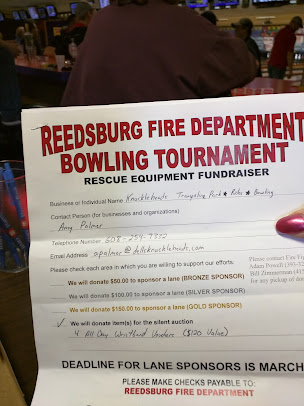 REEDSBURG FIRE DEPARTMENT
BOWLING TOURNAMENT
RESCUE EQUIPMENT FUNDRAISER
Business or Individual Name Knuckleheads Trampoline Park ★ Rides ★ Bowling
Contact Person (for businesses and organizations)
Amy Palmer
Telephone Number 608-254-
Email Address apalmer@dellsknuckleheads.com
Please check each area in which you are willing to support our efforts:
We will donate $50.00 to sponsor a lane (BRONZE SPONSOR)
We will donate $100.00 to sponsor a lane (SILVER SPONSOR)
We will donate $150.00 to sponsor a lane (GOLD SPONSOR)
✓ We will donate item(s) for the silent auction
4 All Day Wristband Vouchers ($120 Value)
Please contact Fire
Adam Powell
Bill Zimmerman
for any pickup of
DEADLINE FOR LANE SPONSORS IS MARCH
PLEASE MAKE CHECKS PAYABLE TO:
REEDSBURG FIRE DEPARTMENT